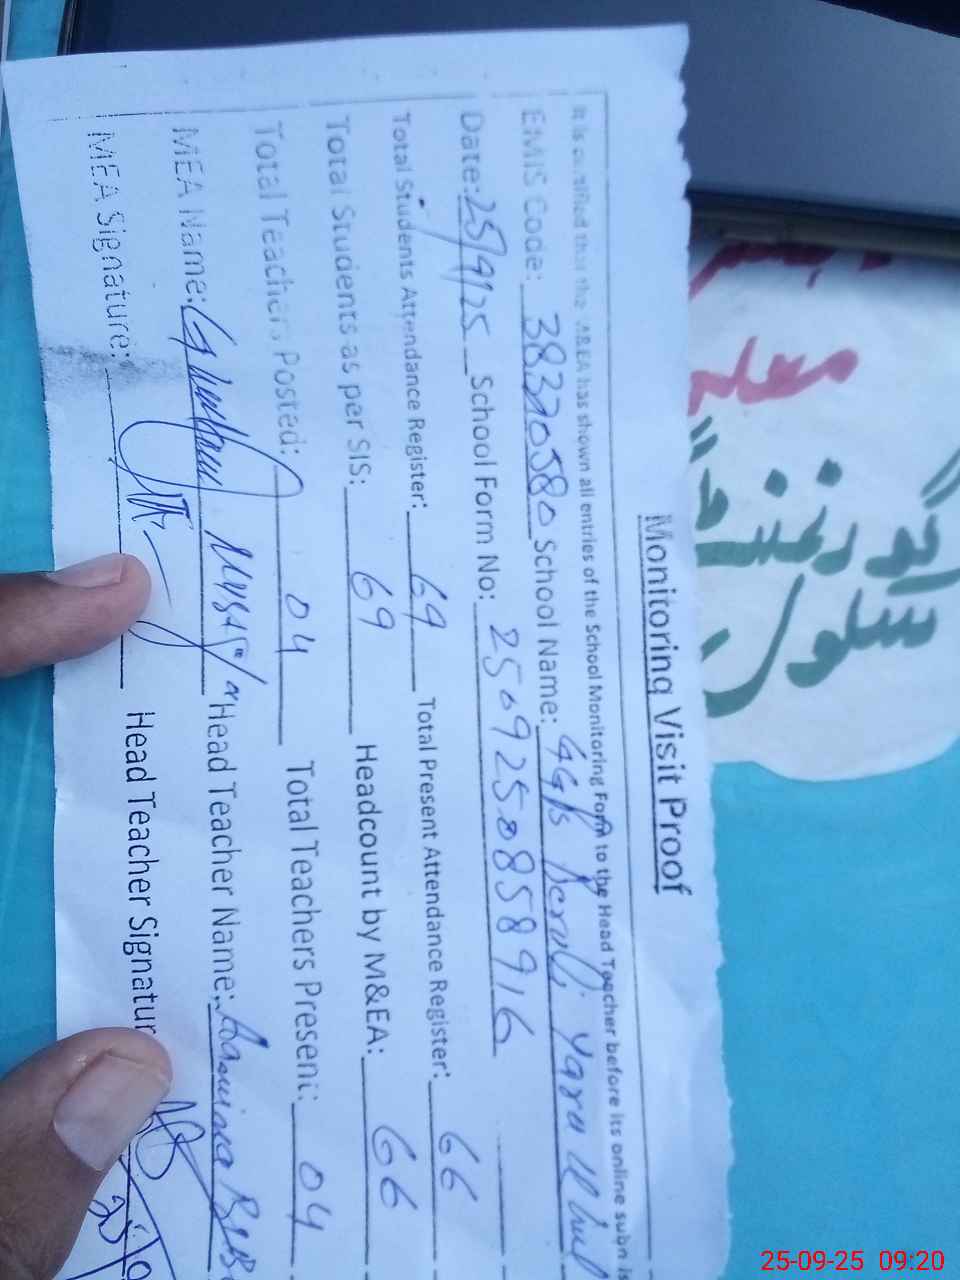 Monitoring Visit Proof
It is certified that the M&EA has shown all entries of the School Monitoring Form to the Head Teacher before its online subn is
EMIS Code: 38320580 School Name: GGPS
Date: 25/9/25 School Form No: 2509250858916
Total Students Attendance Register: 69 Total Present Attendance Register: 66
Total Students as per SIS: 69 Headcount by M&EA: 66
Total Teachers Posted: 04 Total Teachers Present: 04
MEA Name: Ghulam Head Teacher Name:
MEA Signature: Head Teacher Signatur
گورنمنٹ
سکول
25-09-25 09:20